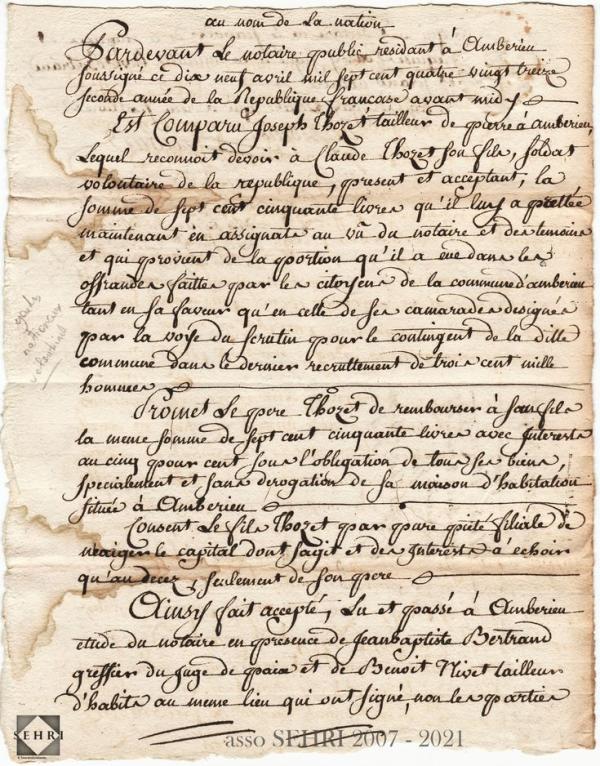 au nom de La nation
Pardevant Le notaire public residant à Amberieu
soussigné ce dix neuf avril mil sept cent quatre vingt treize
seconde année de la Republique francaise avant midy
Est Comparu Joseph Thozet tailleur de pierre à amberieu,
Lequel reconnoit devoir à Claude Thozet son fils, soldat
volontaire de la republique, present et acceptant, la
somme de sept cent cinquante livres qu'il luy a prettée
maintenant en assignats au vû du notaire et des temoins
et qui provient de la portion qu'il a eue dans les
offrandes faittes par les citoyens de la commune d'amberieu
tant en sa faveur qu'en celle de ses camarades designés
par la voye du scrutin pour le contingent de la ditte
commune dans le dernier recrutement de trois cent mille
hommes
Promet Le pere Thozet de rembourser à son fils
la meme somme de sept cent cinquante livres avec Interets
au cinq pour cent sous l'obligation de tous ses biens,
specialement et sans derogation de sa maison d'habitation
située à Amberieu
Consent Le fils Thozet par pure pieté filiale de
n'exiger le capital dont sagit et des Interets à échoir
qu'au decez, seulement de son pere
Ainsy fait accepté, Lu et passé à Amberieu
etude du notaire en presence de Jeanbaptiste Bertrand
greffier du Juge de paix et de Benoit Nivet tailleur
d'habits au meme lieu qui ont signé, non les parties
SEHRI
asso SEHRI 2007 - 2021